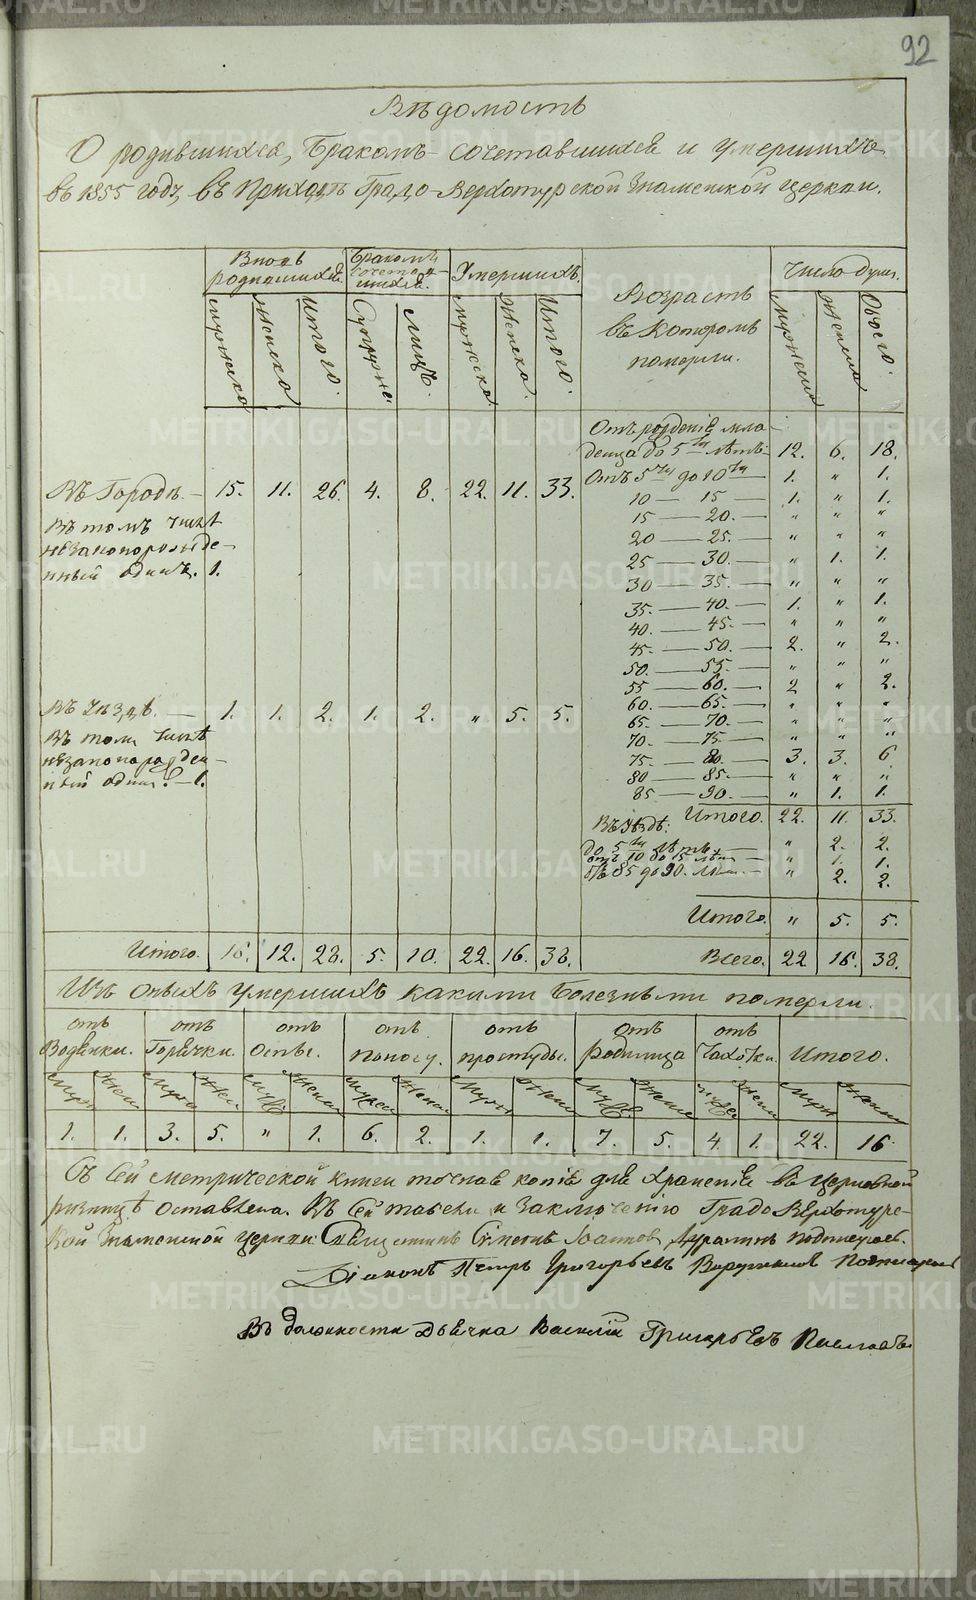 92
Вѣдомость
О родившихся, Бракомъ сочетавшихся и умершихъ
въ 1855 году, въ Приходѣ Градо Верхотурской Знаменской церкви.
Вновь родившихся. Бракомъ сочетавшихся. Умершихъ. Возрастъ въ которомъ померли. Число душъ.
Мужеска Женска Итого. Супруже. Лицъ. Мужска. Женска. Итого. Обоего.
Отъ рожденія мла-
денца до 5ти лѣтъ 12. 6. 18.
Отъ 5ти до 10ти 1. " 1.
Въ Городѣ. — 15. 11. 26. 4. 8. 22. 11. 33.
10 — 15 — 1. " 1.
Въ томъ числѣ
15 — 20. — " " "
незаконорожде-
20 — 25. — " " "
нный одинъ. 1.
25 — 30. — " 1. 1.
30 — 35. — " " "
35. — 40. — 1. " 1.
40. — 45. — " " "
45. — 50. — 2. " 2.
50. — 55. — " " "
55 — 60. — 2 " 2.
60. — 65. — " " "
Въ Уѣздѣ. — 1. 1. 2. 1. 2. " 5. 5.
65. — 70. — " " "
Въ томъ числѣ
70. — 75. — " " "
незаконорожден-
75. — 80. — 3. 3. 6
ный одинъ. — 1.
80 — 85. — " " "
85 — 90. — " 1. 1.
Итого. 22. 11. 33.
Въ Уѣздѣ:
до 5ти лѣтъ — " 2. 2.
отъ 10 до 15 лѣтъ — " 1. 1.
отъ 85 до 90. лѣтъ — " 2. 2.
Итого. " 5. 5.
Итого. 16. 12. 28. 5. 10. 22. 16. 38. Всего. 22 16. 38.
Изъ оныхъ умершихъ какими болезньми померли.
отъ Водянки. отъ Горячки. отъ Оспы. отъ поносу. отъ простуды. отъ родимца отъ Чахотки. Итого.
Муж Жен Муж Жен Муж Женска Мужеск Женска Муж Жен Муж Женс Муж Жен Муж Женск
1. 1. 3. 5. " 1. 6. 2. 1. 1. 7. 5. 4. 1. 22. 16
Съ сей метрической книги точная копія для храненія въ церковной
ризницѣ оставлена. Къ сей табели и заключенію Градо Верхотурс-
кой Знаменской церкви Священникъ Симеонъ Іоанновъ подписуюсь.
Діаконъ Петръ Григорьевъ
Въ должности Дьячка Василій Григорьевъ